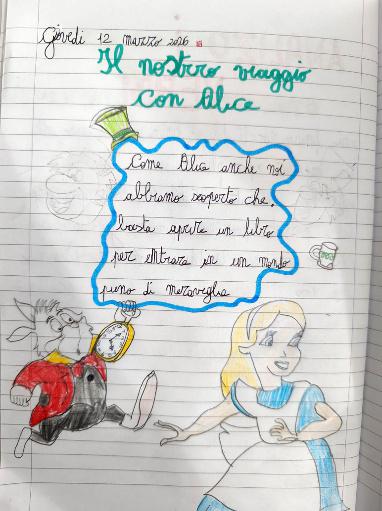 Giovedì 12 marzo 2026
Il nostro viaggio
con Alice
Come Alice anche noi
abbiamo scoperto che
basta aprire un libro
per entrare in un mondo
pieno di meraviglia